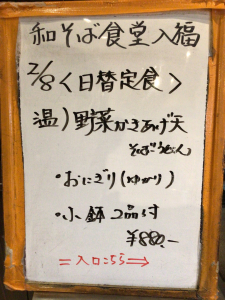 和そば食堂入福
2/8〈日替定食〉
温)野菜かきあげ天
そばorうどん
・おにぎり(ゆかり)
・小鉢2品付
¥880.-
=入口こちら⇒